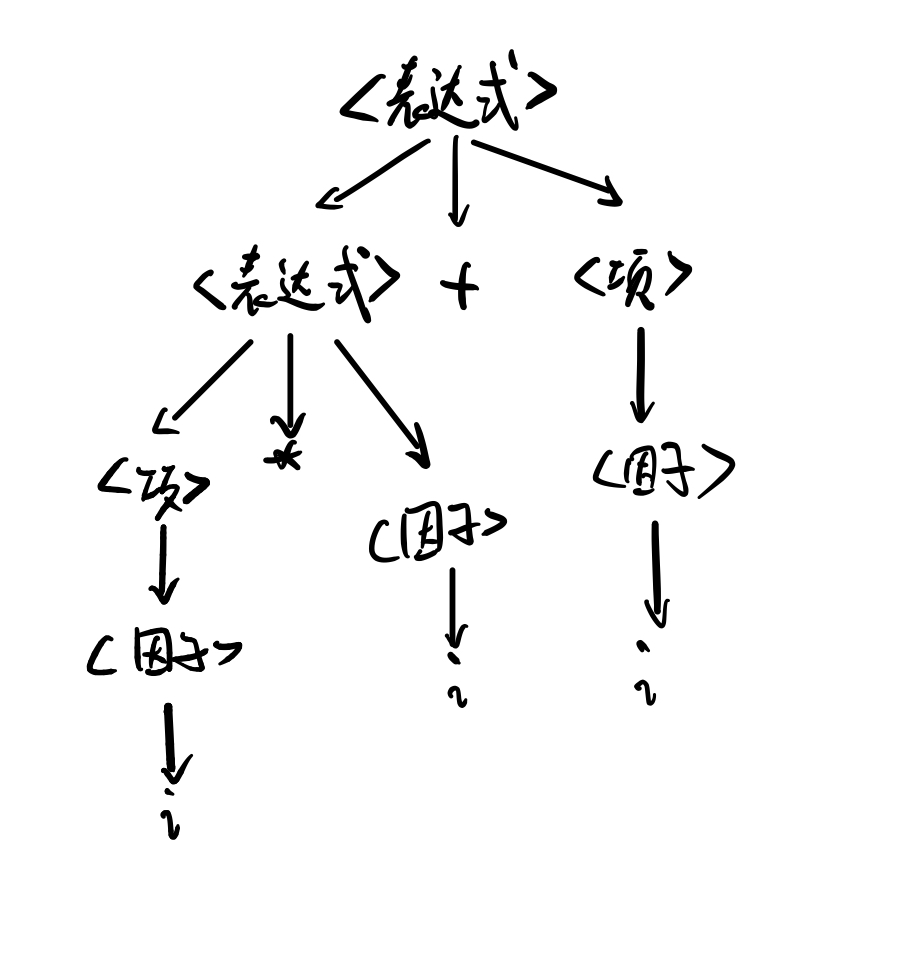 <表达式>
<表达式> + <项>
<项> * <因子> <因子>
<因子> i i
i